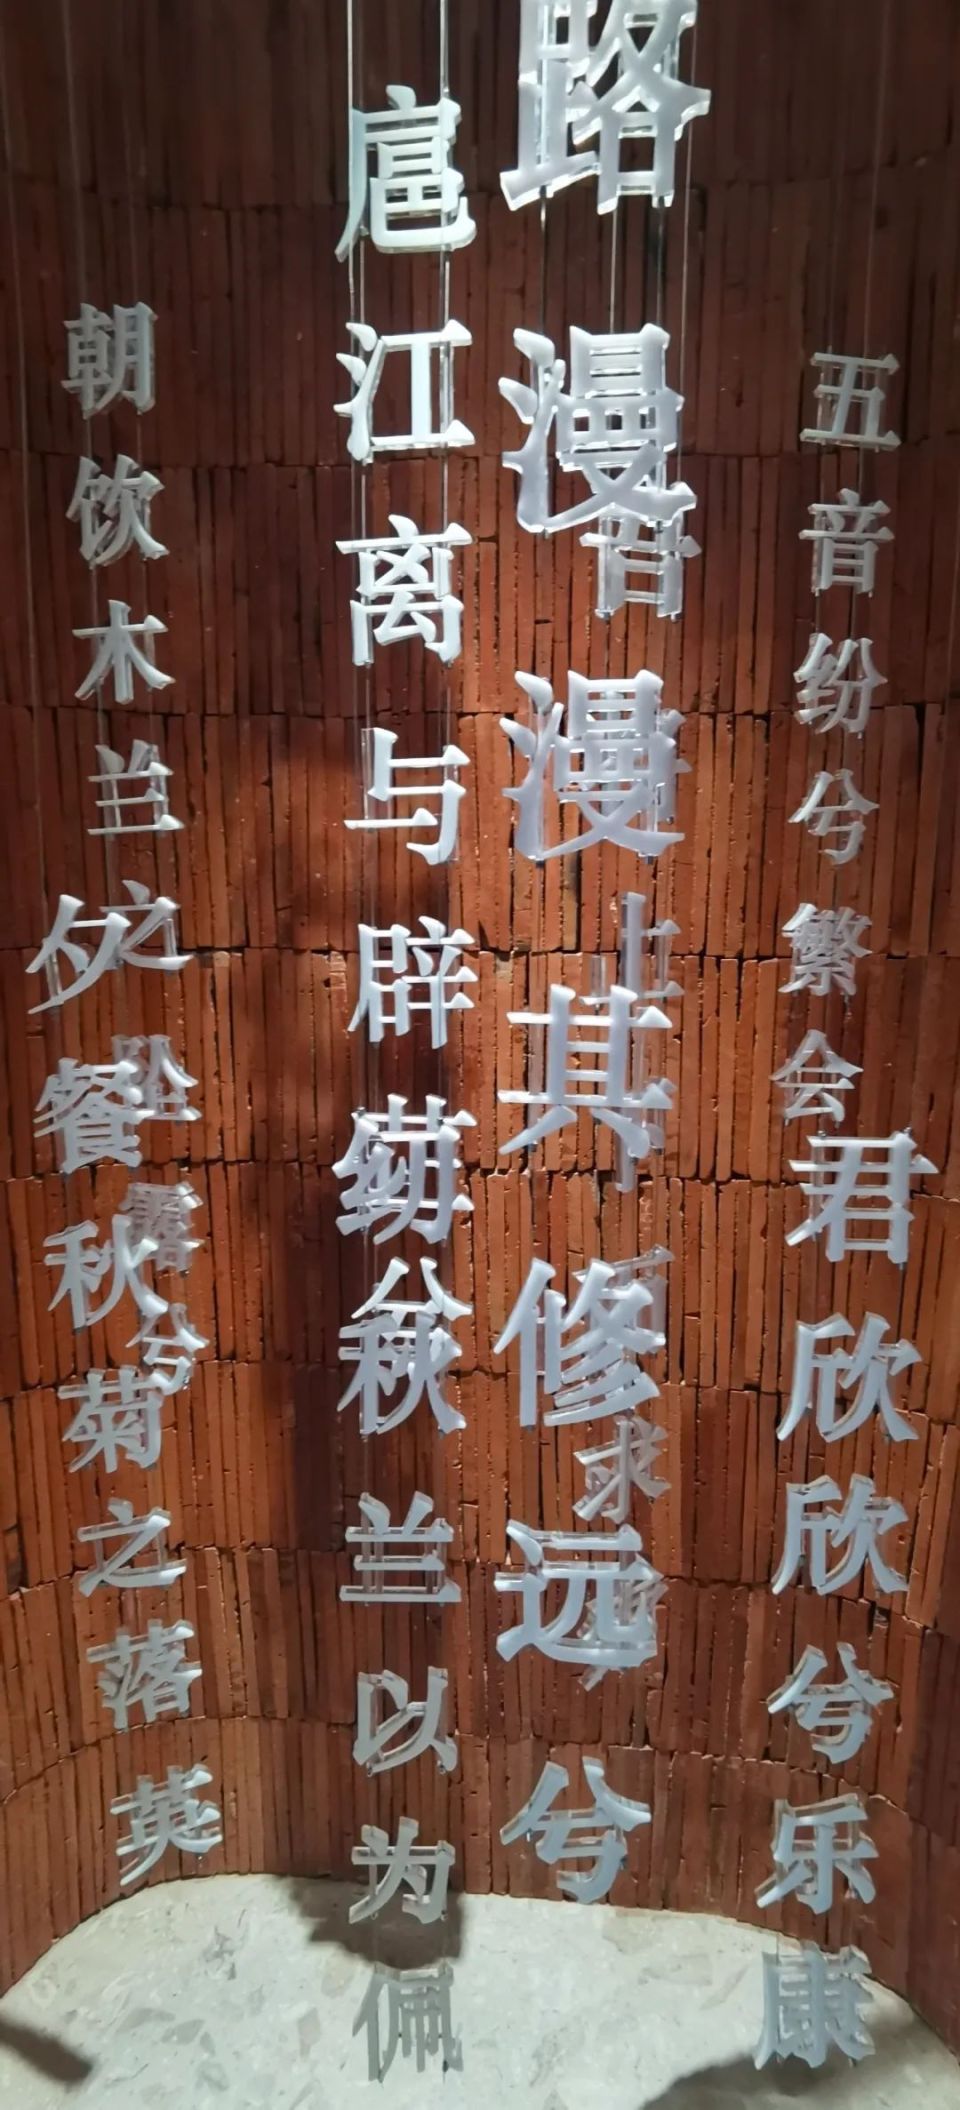 五音纷兮繁会
君欣欣兮乐康
路漫漫其修远兮
上而求索
扈江离与辟芷兮
纫秋兰以为佩
朝饮木兰之坠露兮
夕餐秋菊之落英